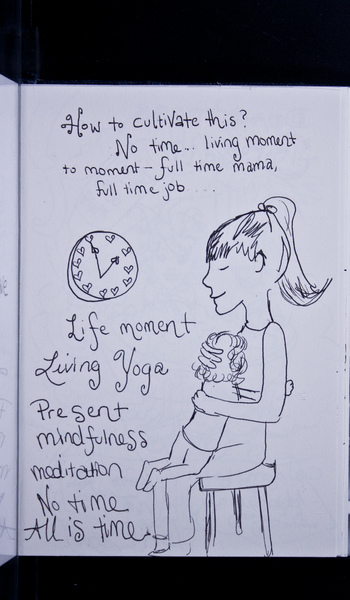 How to cultivate this?
No time... living moment
to moment - full time mama,
full time job ...
Life moment
Living Yoga
Present
mindfulness
meditation
No time
All is time